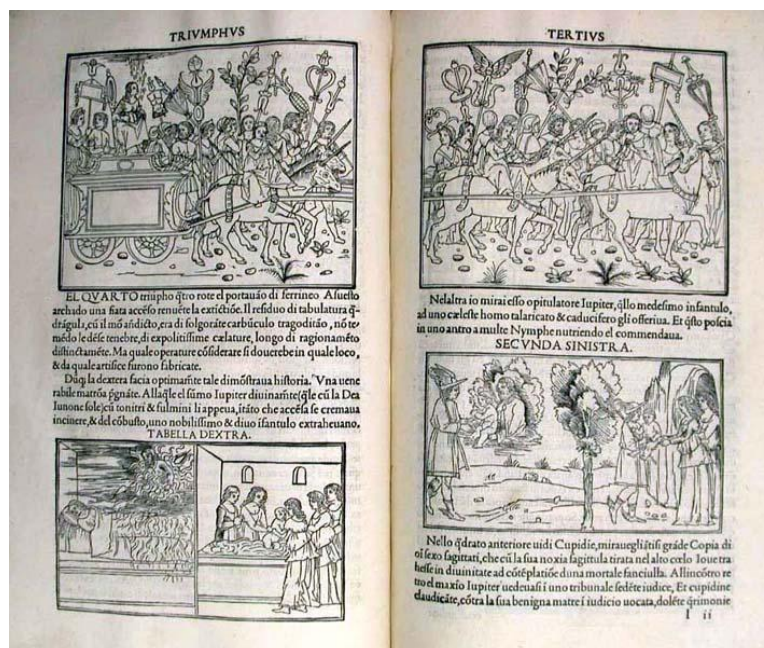 TRIVMPHVS
EL QVARTO triũpho q̃tro rote el portauão di ferrineo Asuesto
archado una fiata accẽso renuẽte la extictiõe. Il residuo di tabulatura q̃-
drãgula, cũ il mõ ãndicto, era di folgorãte carbũculo tragoditão, nõ te-
mẽdo le dẽse tenebre, di expolitissime cælature, longo di ragionamẽto
distinctamẽte. Ma quale operture cõsiderare si douerebe in quale loco,
& da quale artifice furono fabricate.
Dũq̃ la dextera facia optimamẽte tale dimõstraua historia. Vna uene
rabile matrõa p̃gnãte. Allaq̃le el sũmo Iupiter diuinamẽte (q̃le cũ la Dea
Iunone sole) cũ tonitri & fulmini li appeua, itãto che accẽsa se cremaua
incinere, & del cõbusto, uno nobilissimo & diuo ifantulo extraheuano.
TABELLA DEXTRA.
TERTIVS
Nelaltra io mirai esso opitulatore Iupiter, q̃llo medesimo infantulo,
ad uno cæleste homo talaricato & caducifero gli offeriua. Et q̃sto poscia
in uno antro a multe Nymphe nutriendo el commendaua.
SECVNDA SINISTRA.
Nello q̃drato anteriore uidi Cupidie, mirauegliãtisi grãde Copia di
oĩ sexo sagittati, che cũ la sua noxia sagittula tirata nel alto cœlo Ioue tra
hesse in diuinitate ad cõtẽplatiõe duna mortale fanciulla. Allincõtro re
tro el maxĩo Iupiter uedeuasi i uno tribunale sedẽte iudice, Et cupidine
claudicãte, cõtra la sua benigna matre i iudicio uocata, dolẽte q̃rimonie
I ii